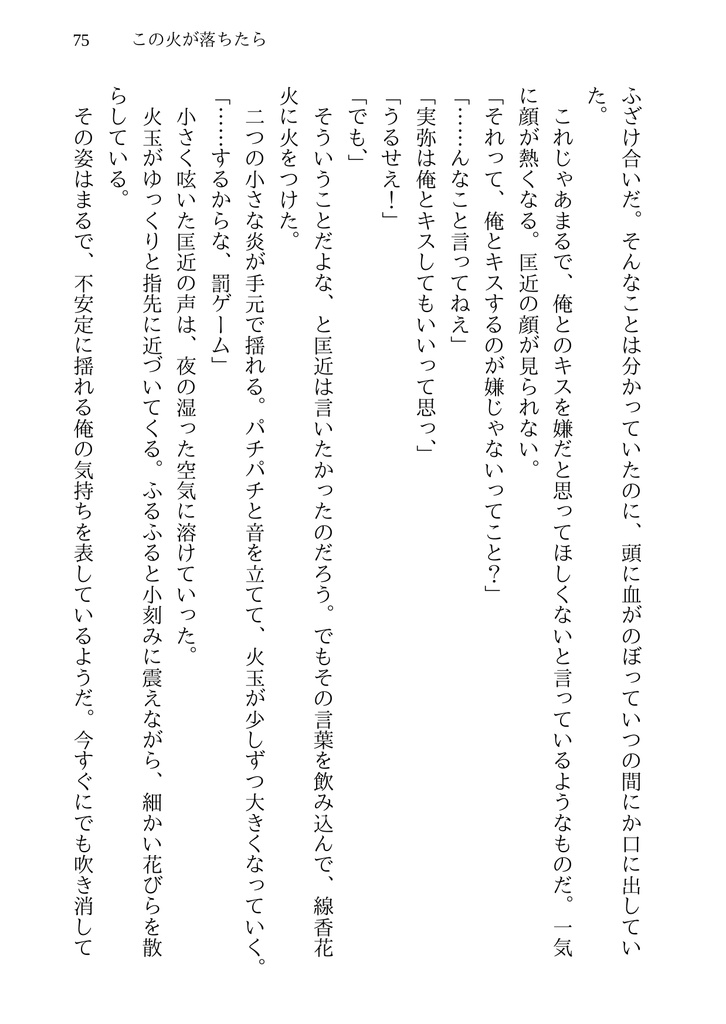 75　この火が落ちたら
ふざけ合いだ。そんなことは分かっていたのに、頭に血がのぼっていつの間にか口に出してい
た。
これじゃあまるで、俺とのキスを嫌だと思ってほしくないと言っているようなものだ。一気
に顔が熱くなる。匡近の顔が見られない。
「それって、俺とキスするのが嫌じゃないってこと？」
「……んなこと言ってねえ」
「実弥は俺とキスしてもいいって思っ、」
「うるせえ！」
「でも、」
そういうことだよな、と匡近は言いたかったのだろう。でもその言葉を飲み込んで、線香花
火に火をつけた。
二つの小さな炎が手元で揺れる。パチパチと音を立てて、火玉が少しずつ大きくなっていく。
「……するからな、罰ゲーム」
小さく呟いた匡近の声は、夜の湿った空気に溶けていった。
火玉がゆっくりと指先に近づいてくる。ふるふると小刻みに震えながら、細かい花びらを散
らしている。
その姿はまるで、不安定に揺れる俺の気持ちを表しているようだ。今すぐにでも吹き消して